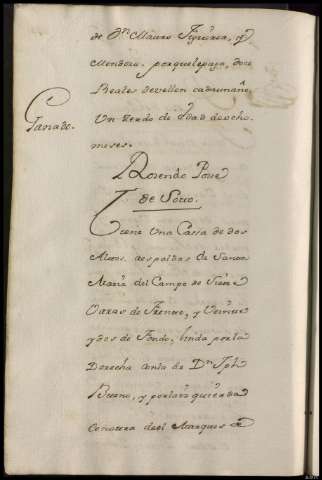 de Dn. Mauro Figueroa, y
Mendoza. por que le paga, doce
Reales de vellon cada un año,
Ganado.
Un zerdo de edad de ocho
meses.
Rosendo Pose
de Souo.
Tiene Una Cassa de dos
Altos. a espaldas de Santa
Maria del Campo de Siete
Varas de frente, y Veinte
y dos de Fondo, linda por la
Derecha con la de Dn. Jph
Bueno, y por la izquierda
con otra del Marques de